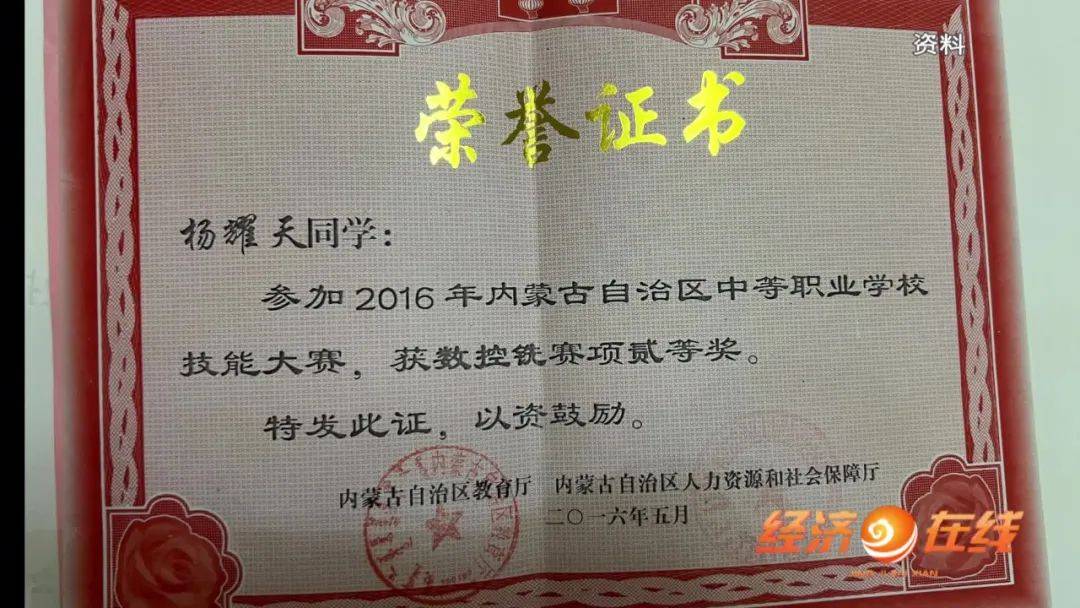 资料
荣誉证书
杨耀天同学：
参加2016年内蒙古自治区中等职业学校
技能大赛，获数控铣赛项贰等奖。
特发此证，以资鼓励。
内蒙古自治区教育厅 内蒙古自治区人力资源和社会保障厅
二〇一六年五月
经济在线